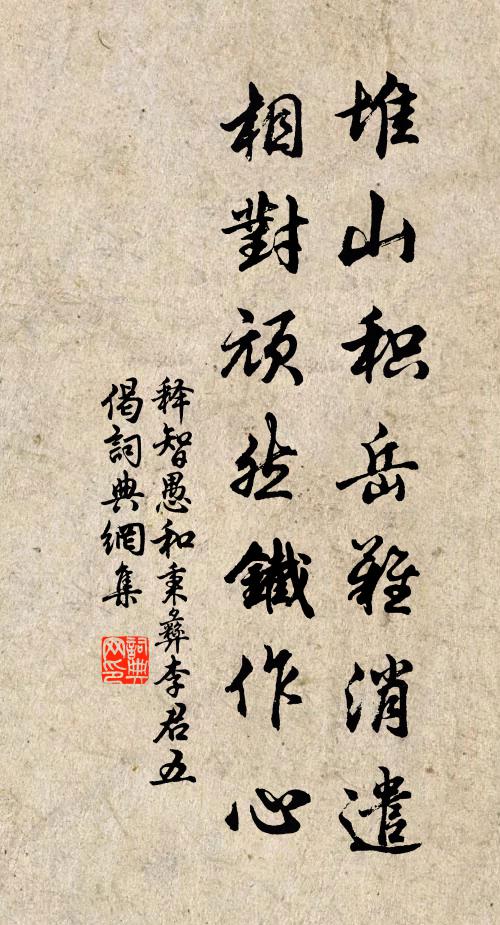 堆山积岳難消遣
相對頑然鐵作心
释智愚和秉彝李君五
偈詞典網集
詞典网印